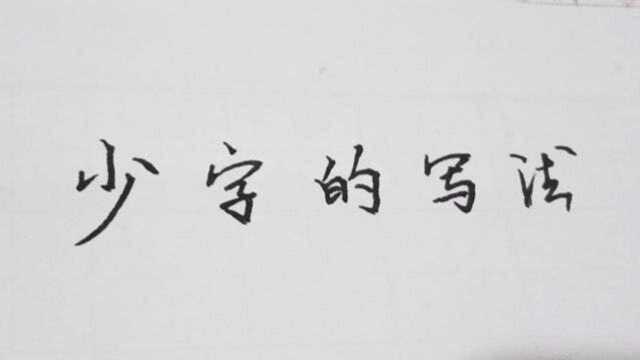 少字的写法